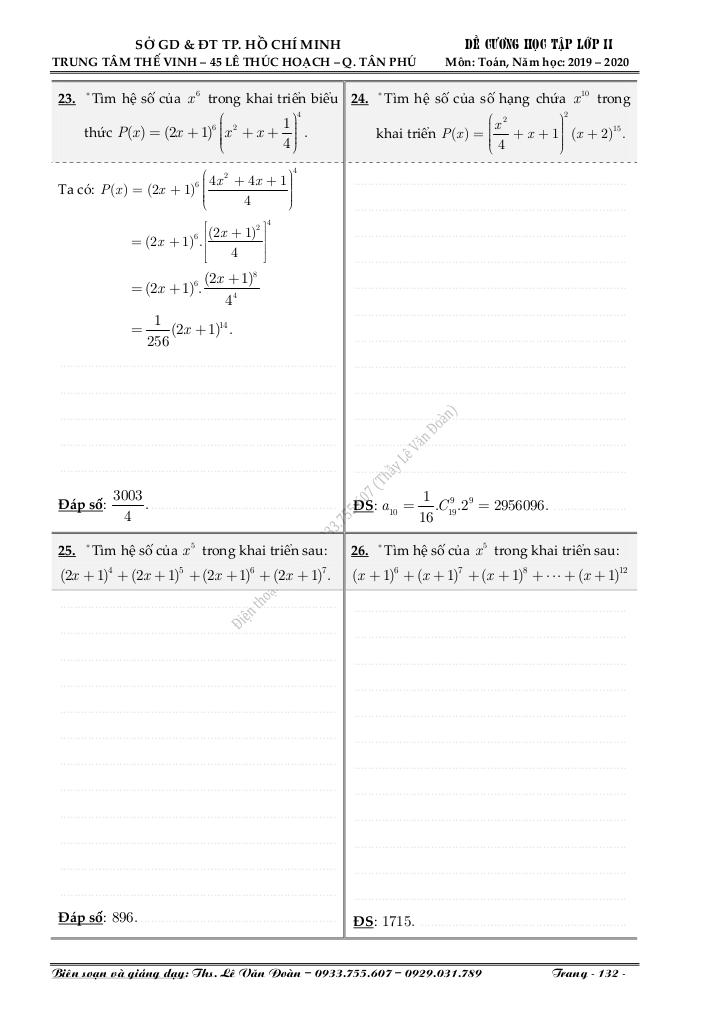 SỞ GD & ĐT TP. HỒ CHÍ MINH
ĐỀ CƯƠNG HỌC TẬP LỚP 11
TRUNG TÂM THẾ VINH – 45 LÊ THÚC HOẠCH – Q. TÂN PHÚ
Môn: Toán, Năm học: 2019 – 2020
23. *Tìm hệ số của x⁶ trong khai triển biểu
thức P(x) = (2x + 1)⁶(x² + x + 1/4)⁴.
Ta có: P(x) = (2x + 1)⁶((4x² + 4x + 1)/4)⁴
= (2x + 1)⁶.[(2x + 1)²/4]⁴
= (2x + 1)⁶.(2x + 1)⁸/4⁴
= 1/256 (2x + 1)¹⁴.
Đáp số: 3003/4.
24. *Tìm hệ số của số hạng chứa x¹⁰ trong
khai triển P(x) = (x²/4 + x + 1)²(x + 2)¹⁵.
ĐS: a₁₀ = 1/16.C₁₉⁹.2⁹ = 2956096.
25. *Tìm hệ số của x⁵ trong khai triển sau:
(2x + 1)⁴ + (2x + 1)⁵ + (2x + 1)⁶ + (2x + 1)⁷.
Đáp số: 896.
26. *Tìm hệ số của x⁵ trong khai triển sau:
(x + 1)⁶ + (x + 1)⁷ + (x + 1)⁸ + ⋯ + (x + 1)¹²
ĐS: 1715.
Điện thoại 933.755.607 (Thầy Lê Văn Đoàn)
Biên soạn và giảng dạy: Ths. Lê Văn Đoàn – 0933.755.607 – 0929.031.789
Trang - 132 -